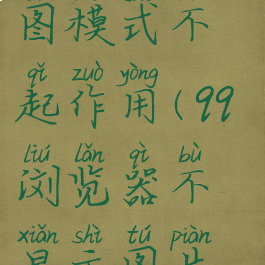 图模式不
qǐ zuò yòng
起作用(99
liú lǎn qì bù
浏览器不
xiǎn shì tú piàn
显示图片